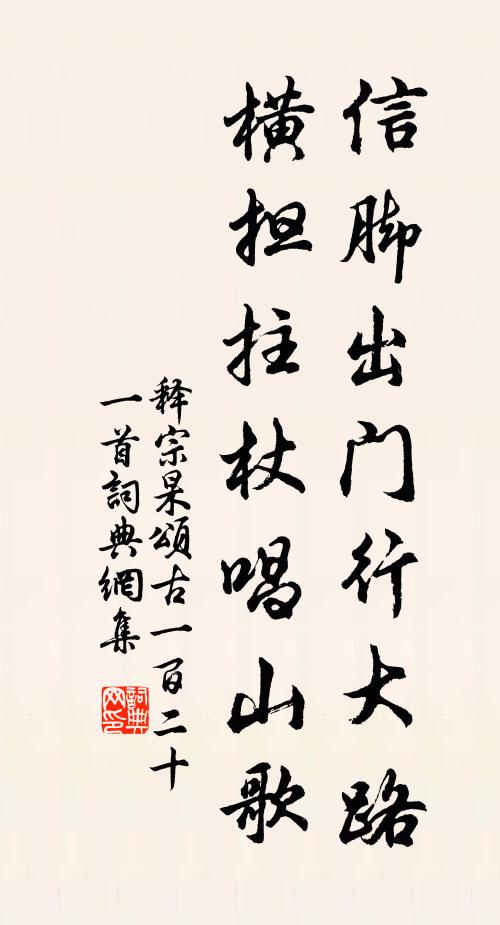 信脚出门行大路
横担拄杖唱山歌
释宗杲頌古一百二十
一首詞典網集
詞典网印